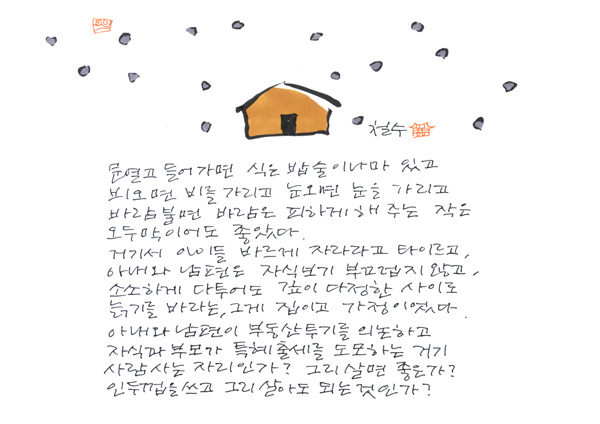 철수
문열고 들어가면 식은 밥술이나마 있고
비오면 비를 가리고 눈오면 눈을 가리고
바람불면 바람은 피하게 해 주는 작은
오두막이어도 좋았다.
거기서 아이들 바르게 자라라고 타이르고,
아내와 남편은 자식보기 부끄럽지 않고,
소소하게 다투어도 깊이 다정한 사이로
늙기를 바라는, 그게 집이고 가정이었다.
아내와 남편이 부동산투기를 의논하고
자식과 부모가 특혜출세를 도모하는 거기
사람사는 자리인가? 그리살면 좋은가?
인두껍을쓰고 그리살아도 되는것인가?